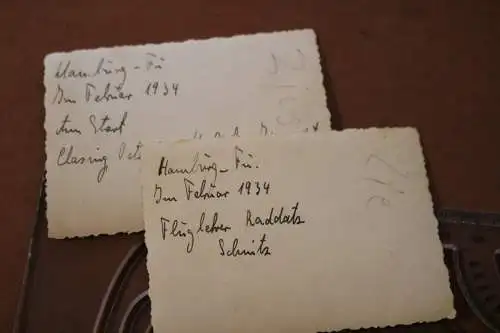 Hamburg - Fu.
Im Februar 1934
Zum Start
Clasing
Hamburg - Fu.
Im Februar 1934
Fluglehrer Raddatz
Schmitz